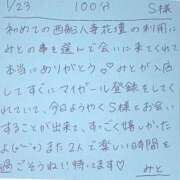 1/23 100分 S様
初めての西船人妻花壇の利用に
みとの事を選んで会いに来てくれて
本当にありがとう♡みとが入店
してすぐにマイガール登録をしてく
れていて、今日ようやくS様とお会い
することが出来て、すごく嬉しかった
よ(о´∀`о)また2人で楽しい時間を
過ごそうねい待ってます♡
みと